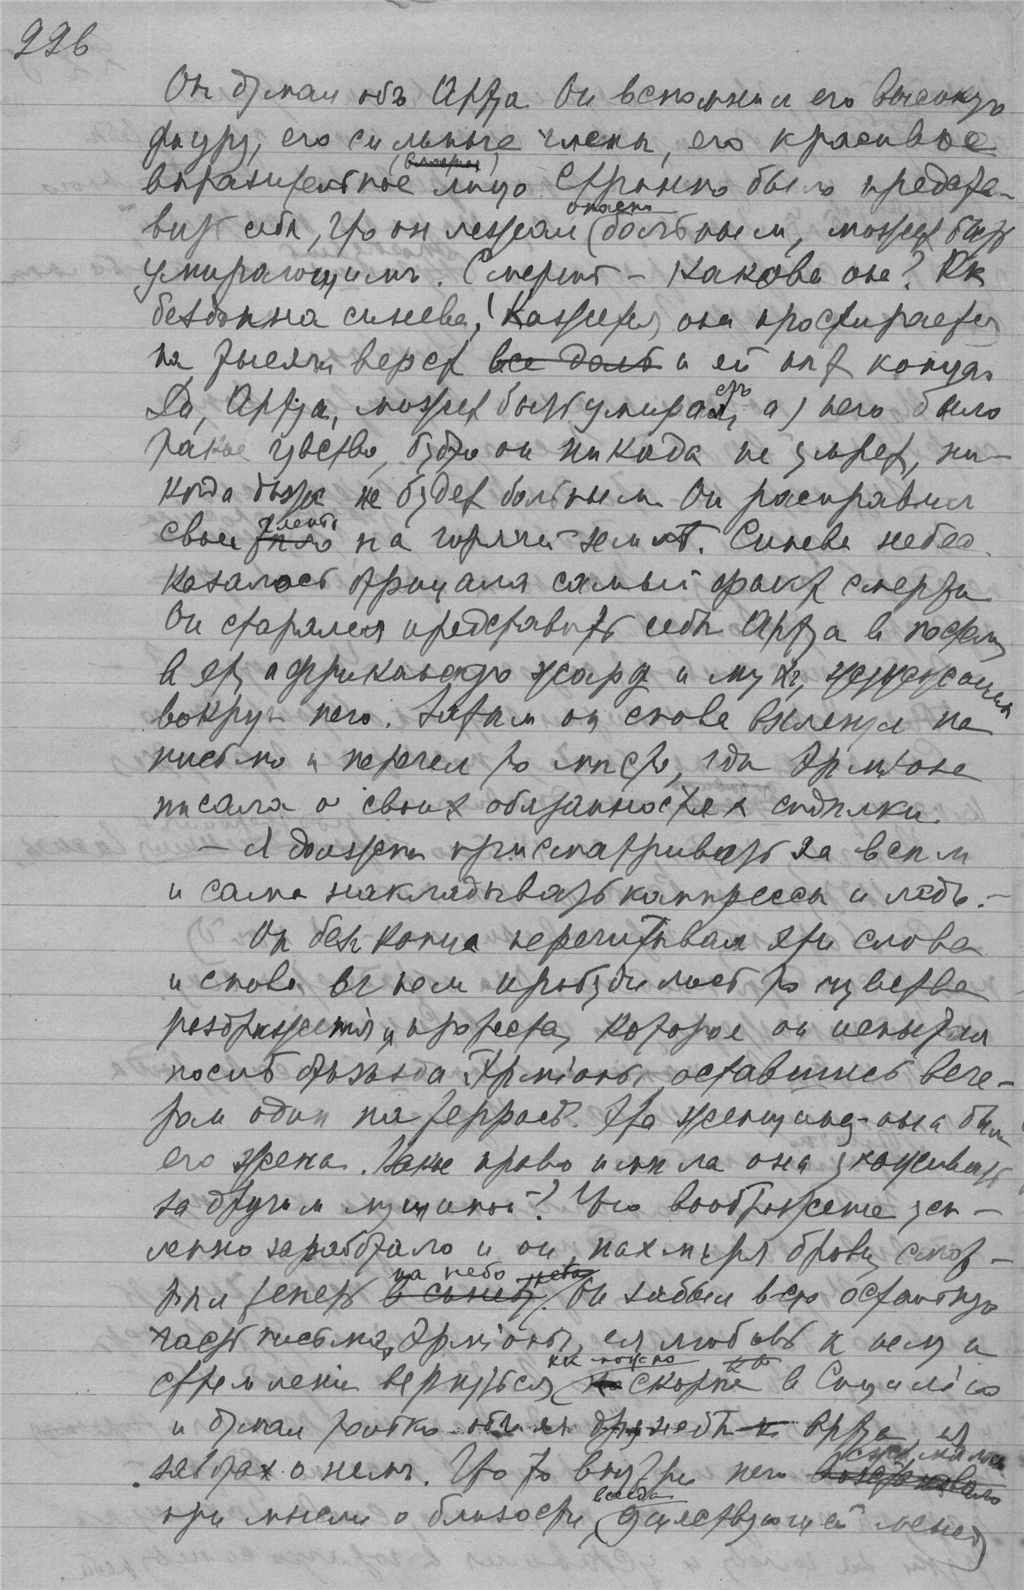 226
Он думал объ Артуа Он вспомнил его высокую
фигуру, его сильные члены, его красивое
выразительное лицо Странно было предста-
вить себе, что он лежал опасно больным, может быть
умирающимъ. Смерть – какова она? Как
бездонна синева! Кажется, она простирается
на тысячи верст и ей нет конца.
Да, Артуа, может быть умирает, а у него было
такое чувство, будто он никогда не умрет, ни-
когда даже не будет больным Он расправил
свои члены на горячей землѣ. Синева небес
казалось отрицала самый факт смерти
Он старался представить себе Артуа в постели
в эту африканскую жару и мух, жужжащих
вокруг него. Затем он снова взглянул на
письмо и перечел то место, где Эрміона
писала о своих обязанностях сиделки.
– Я должна присматривать за всем
и сама накладывать компрессы и ледъ. –
Он без конца перечитывал эти слова
и снова в нем пробудилось то чувство
раздражения и протеста, которое он испытал
послѣ отъезда Эрміоны, оставшись вече-
ром один на террасѣ. Эта женщина – она была
его жена. Какое право имела она ухаживать
за другим мущиной? Его воображение уси-
ленно заработало и он, нахмуря брови, смот-
рел теперь на небо Он забыл всю остальную
часть письма Эрміоны, ея любовь к нему и
стремление вернуться как можно скорее в Сицилію
и думал только об ея дружбе к Артуа, ея
заботах о немъ. Что то внутри него
при мысли о близости всегда